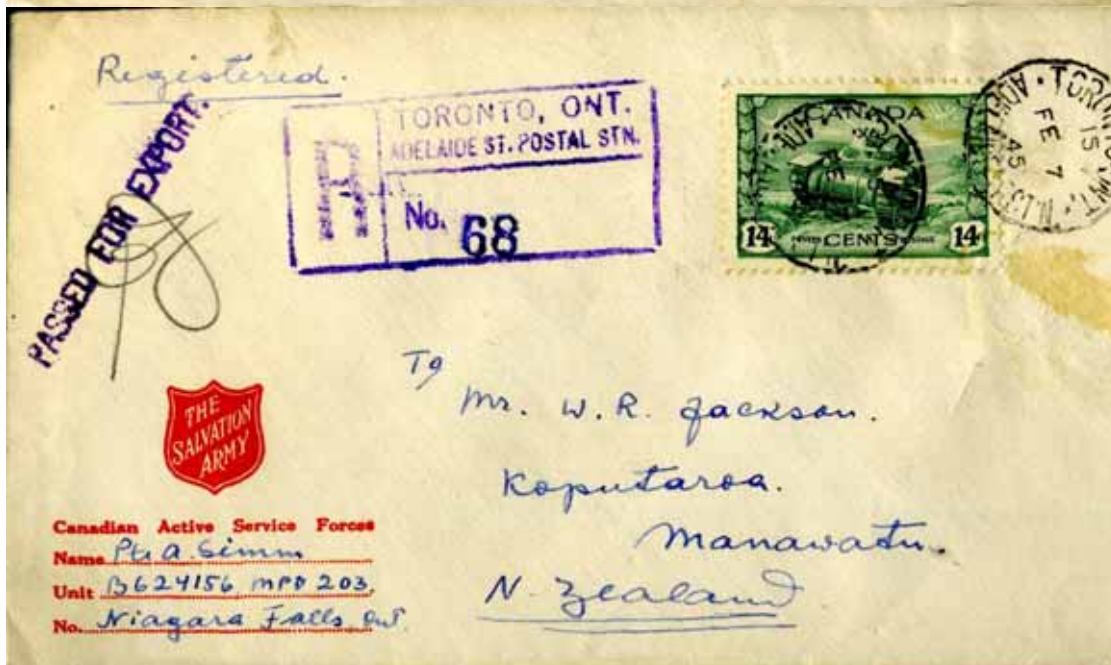 Registered.
PASSED FOR EXPORT.
R
TORONTO, ONT.
ADELAIDE ST. POSTAL STN.
No. 68
CANADA
14 CENTS 14
TORONTO, ONT.
15
FE 7
45
THE
SALVATION
ARMY
To
Mr. W. R. Jackson.
Koputaroa.
Manawatu.
N. Zealand
Canadian Active Service Forces
Name Pte A. Simm
Unit B624156, MPD 203,
No. Niagara Falls Ont.